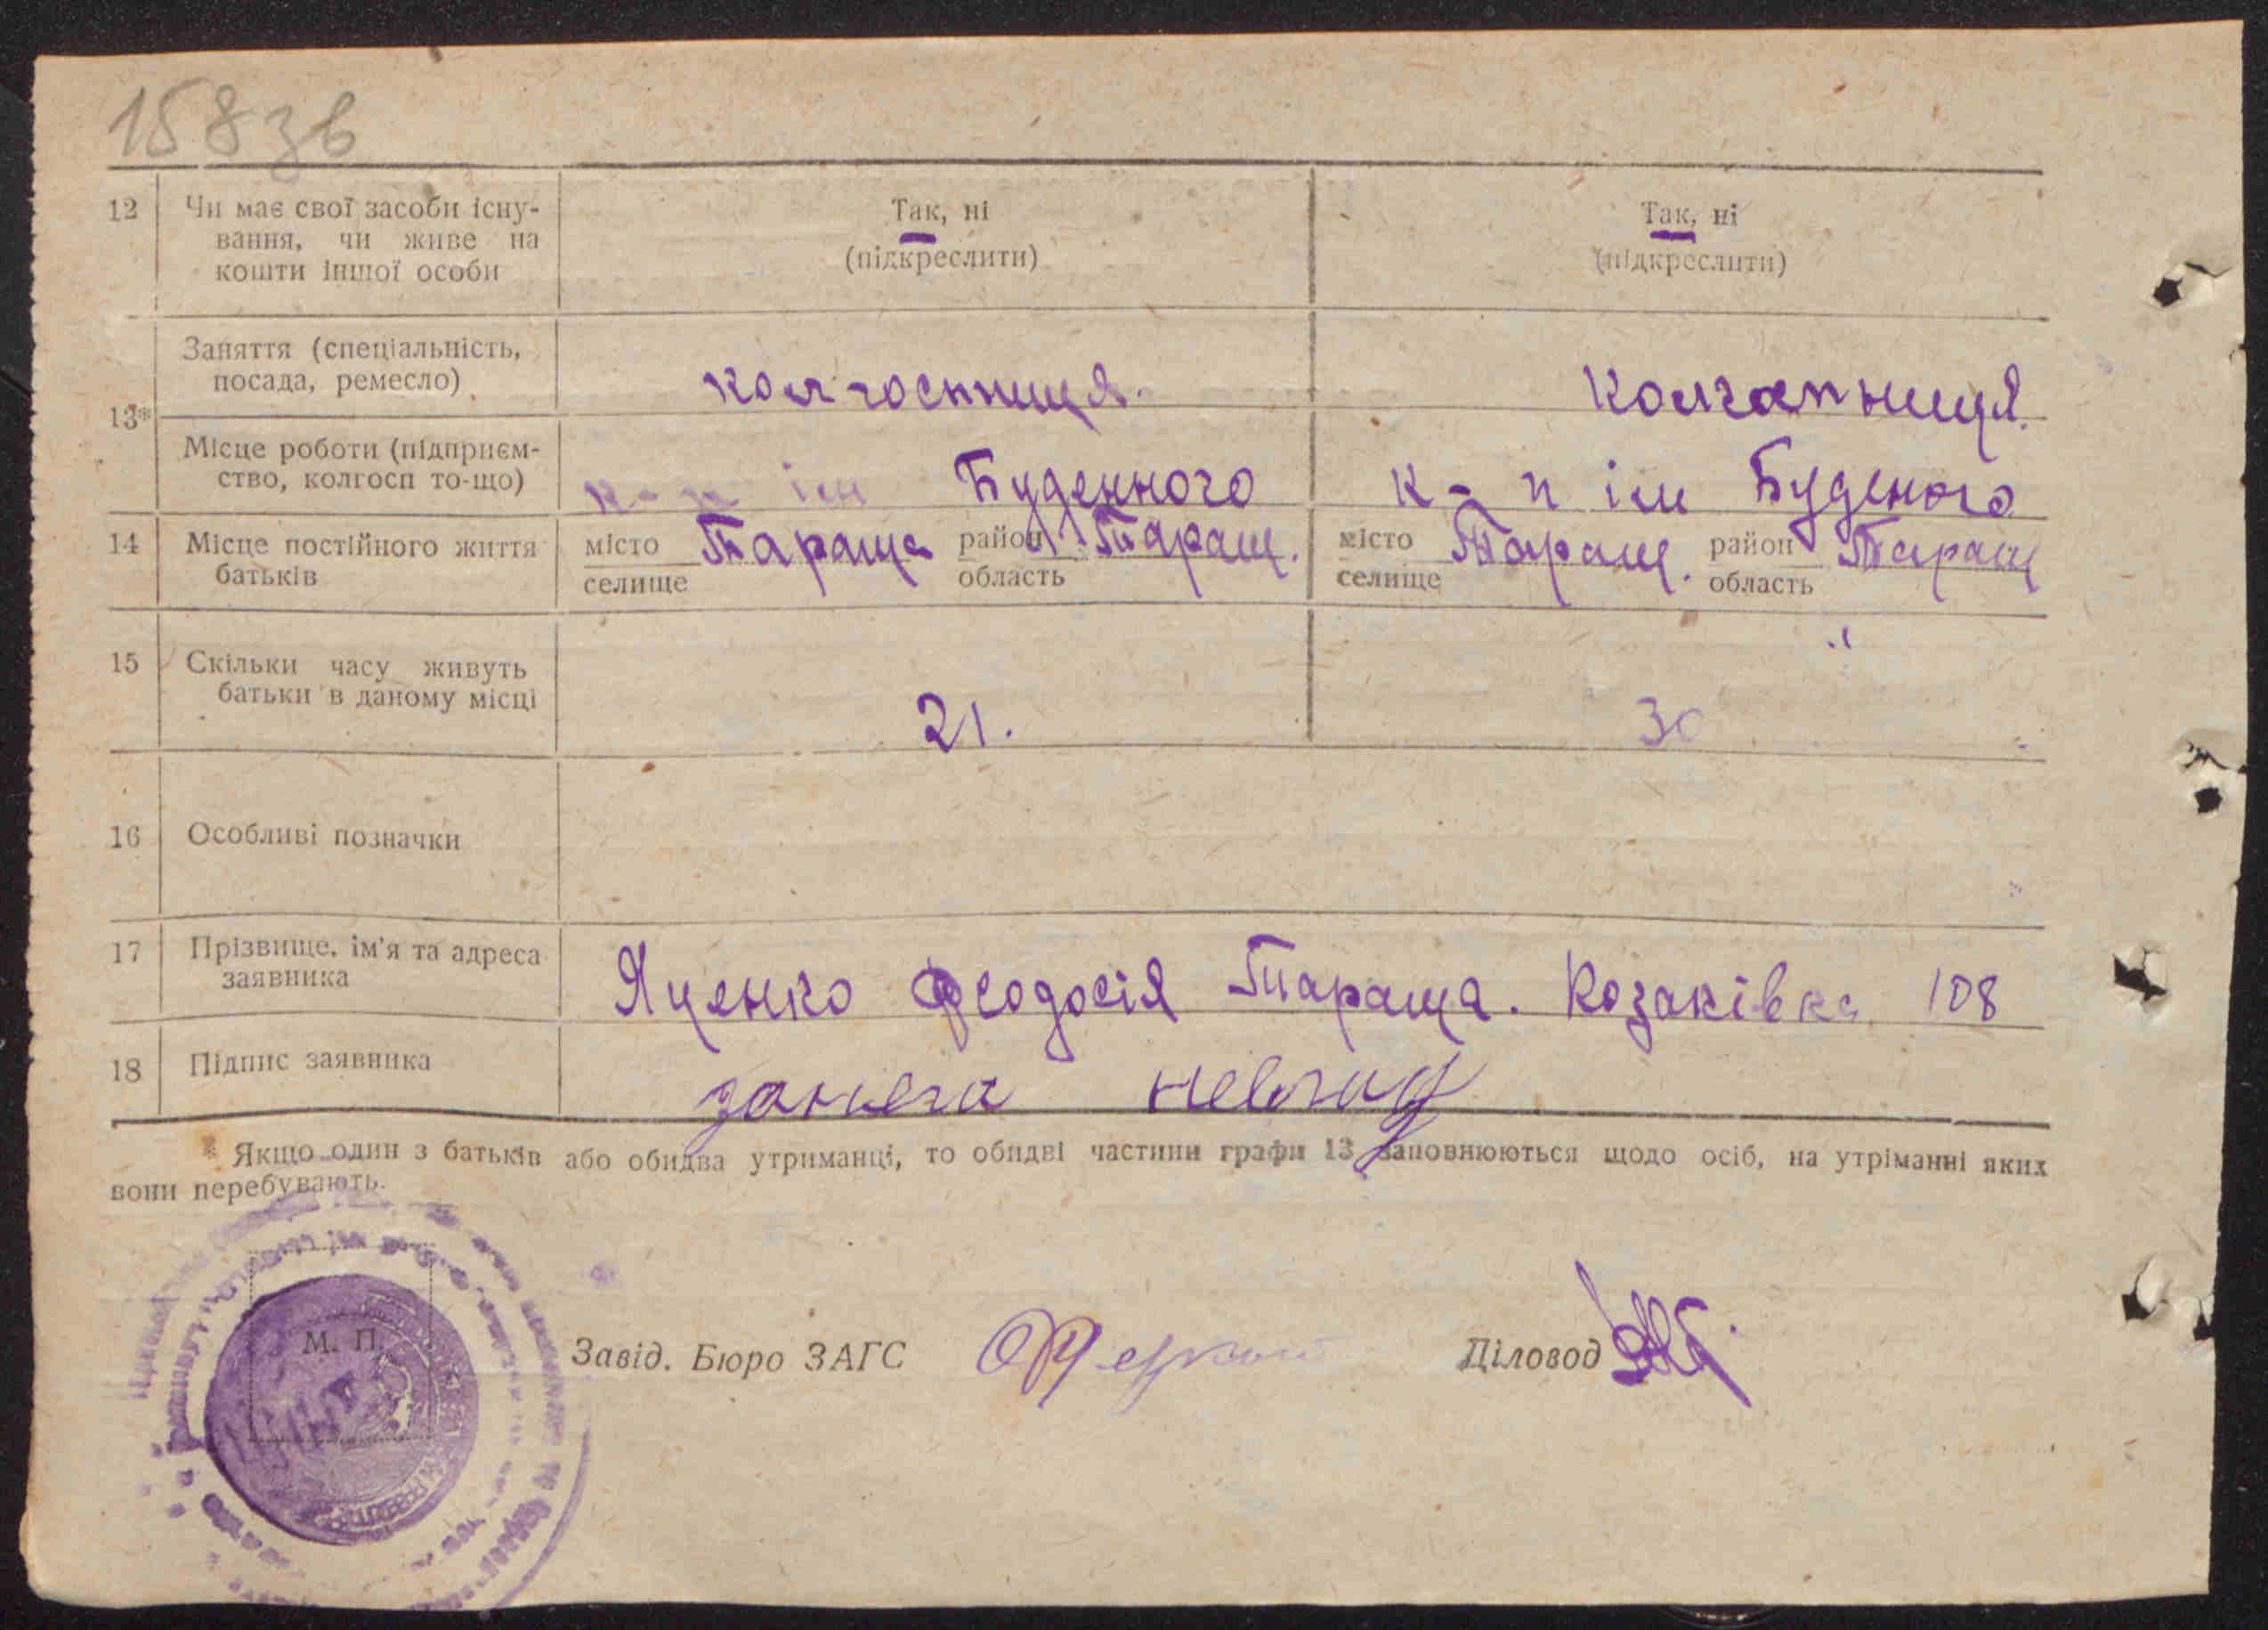 158зв
12 Чи має свої засоби існу- Так, ні Так, ні
вання, чи живе на (підкреслити) (підкреслити)
кошти іншої особи
13* Заняття (спеціальність, колгоспниця. колгапниця.
посада, ремесло)
Місце роботи (підприєм-
ство, колгосп то-що) к-п ім Буденного к-п ім Буденого
14 Місце постійного життя місто Тараща район Таращ. місто Таращ. район Таращ
батьків селище область селище область
15 Скільки часу живуть
батьки в даному місці 21. 30
16 Особливі позначки
17 Прізвище, ім'я та адреса
заявника Яценко Феодосія Тараща. Козаківка 108
18 Підпис заявника
* Якщо один з батьків або обидва утриманці, то обидві частини графи 13 заповнюються щодо осіб, на утріманні яких
вони перебувають.
М. П. Завід. Бюро ЗАГС Діловод